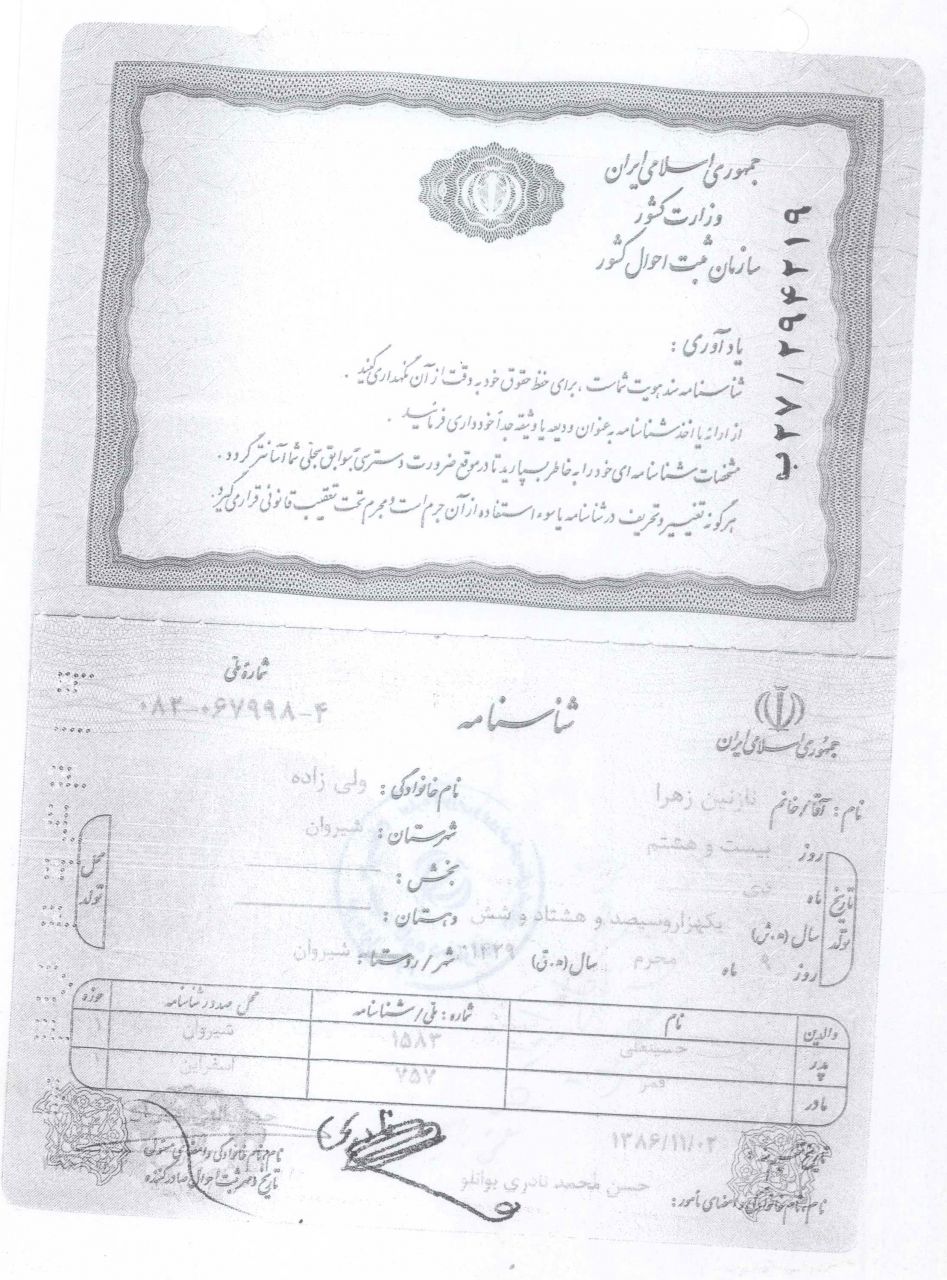 جمهوری اسلامی ایران
وزارت کشور
سازمان ثبت احوال کشور
ب۲۷/۲۹۴۲۱۹
یادآوری :
شناسنامه سند هویت شماست ، برای حفظ حقوق خود به دقت از آن نگهداری کنید .
از ارائه یا اخذ شناسنامه به عنوان ودیعه یا وثیقه جداً خودداری فرمائید .
مشخصات شناسنامه ای خود را به خاطر بسپارید تا در موقع ضرورت دسترسی به سوابق سجلی شما آسانتر گردد .
هرگونه تغییر و تحریف در شناسنامه یا سوء استفاده از آن جرم است و مجرم تحت تعقیب قانونی قرار می گیرد.
شمارهٔ ملی
۰۸۲-۰۶۷۹۹۸-۴
شناسنامه
جمهوری اسلامی ایران
نام : آقا/خانم نازنین زهرا
نام خانوادگی : ولی زاده
تاریخ تولد
روز بیست و هشتم
ماه دی
سال (ه.ش) یکهزاروسیصد و هشتاد و شش
روز ۹ ماه محرم سال (ه.ق) ۱۴۲۹
محل تولد
شهرستان : شیروان
بخش :
دهستان :
شهر / روستا : شیروان
والدین نام شماره : ملی/شناسنامه محل صدور شناسنامه حوزه
پدر حسینعلی ۱۵۸۳ شیروان ۱
مادر قمر ۷۵۷ اسفراین ۱
۱۳۸۶/۱۱/۰۲
نام، نام خانوادگی و امضای مأمور: حسن محمد نادری بوانلو
نام، نام خانوادگی و امضای مسئول
تاریخ و مهر ثبت احوال صادرکننده